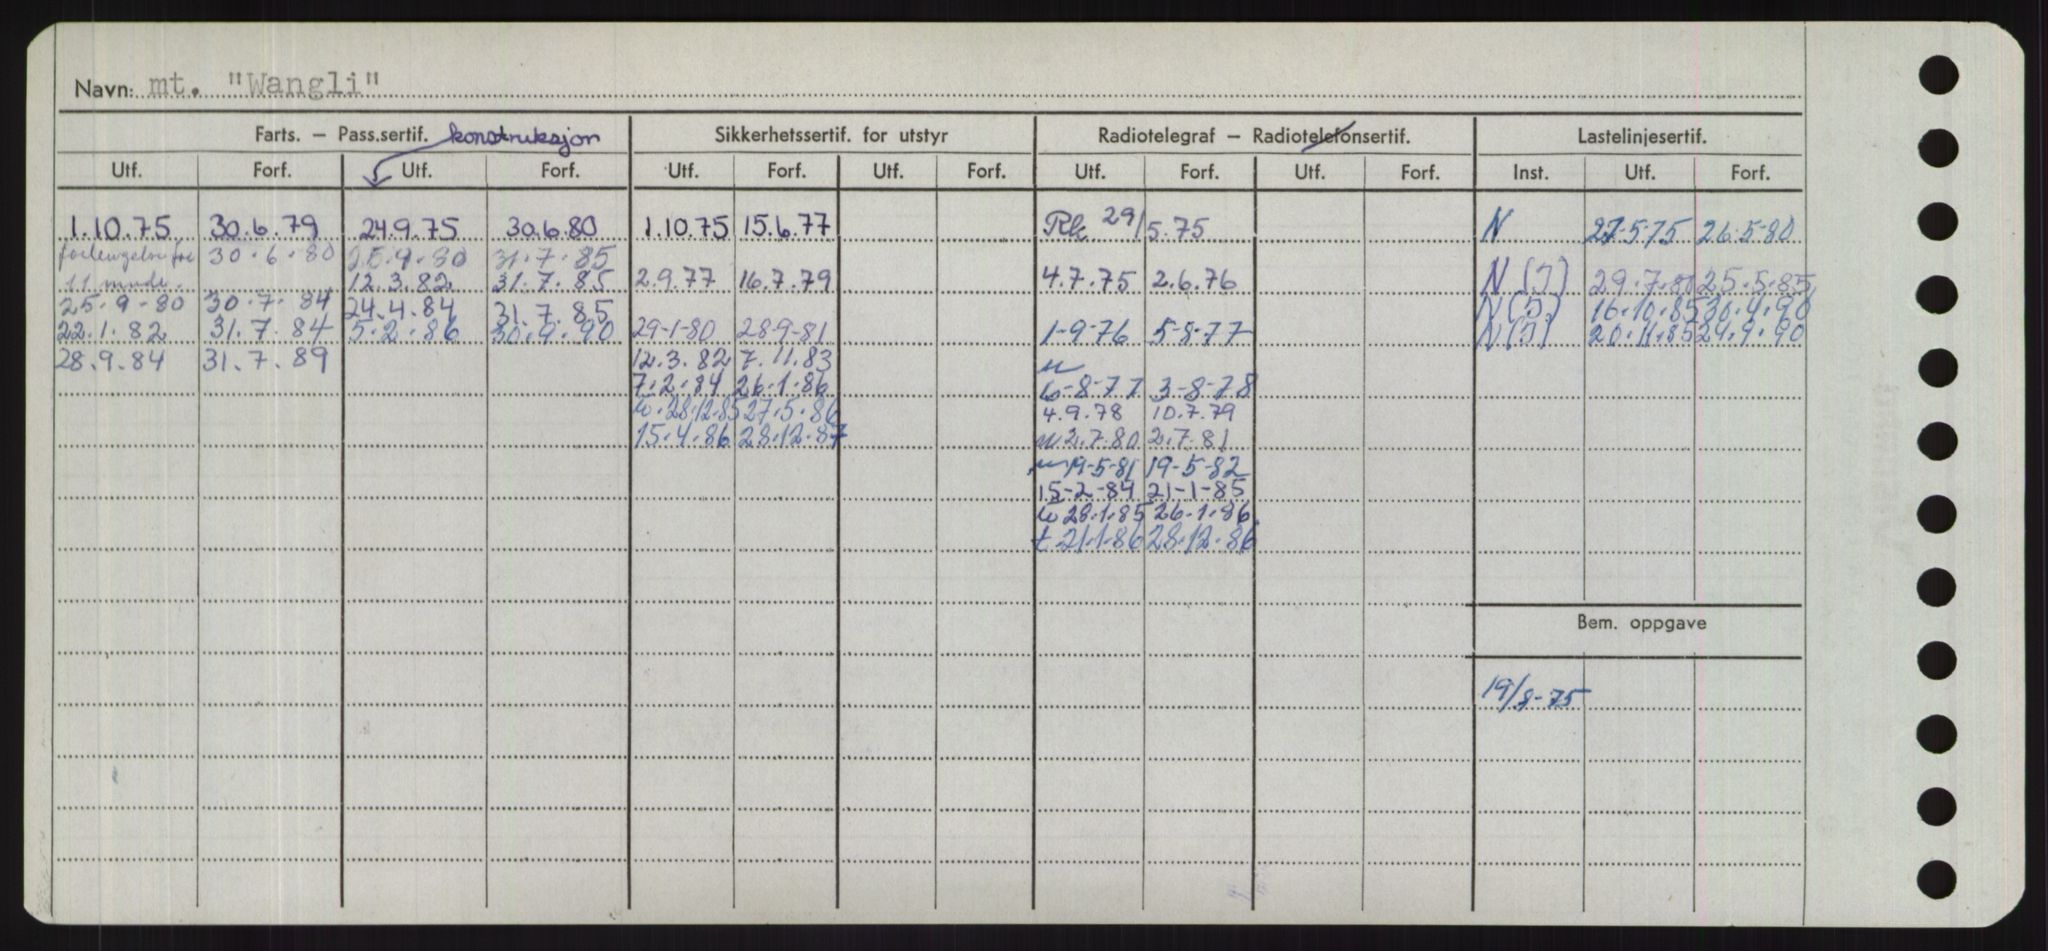 Navn: mt. "Wangli"
Farts. – Pass.sertif. konstruksjon Sikkerhetssertif. for utstyr Radiotelegraf – Radiotelefonsertif. Lastelinjesertif.
Utf. Forf. Utf. Forf. Utf. Forf. Utf. Forf. Utf. Forf. Utf. Forf. Inst. Utf. Forf.
1.10.75 30.6.79 24.9.75 30.6.80 1.10.75 15.6.77 Rk 29/5.75 N 27-5-75 26-5-80
forlengelse for 30.6.80 25.9.80 31.7.85
11 mndr. 12.3.82 31.7.85 2.9.77 16.7.79 4.7.75 2.6.76 N(J) 29.7.80 25.5.85
25.9-80 30.7.84 24.4.84 31.7.85 N(J) 16.10.85 30.4.90
22.1.82 31.7.84 5.2.86 30.9.90 29-1-80 28-9-81 1-9-76 5-8-77 N(J) 20.11.85 24.9.90
28.9.84 31.7.89 12.3.82 7.11.83
7.2.84 26.1.86 6-8-77 3-8-78
28.12.85 27.5.86 4.9.78 10.7.79
15.4.86 28.12.87 2.7.80 2.7.81
19-5-81 19-5-82
15-2-84 21-1-85
28.1.85 26.1.86.
t 21.1.86 28.12.86
Bem. oppgave
19/8-75